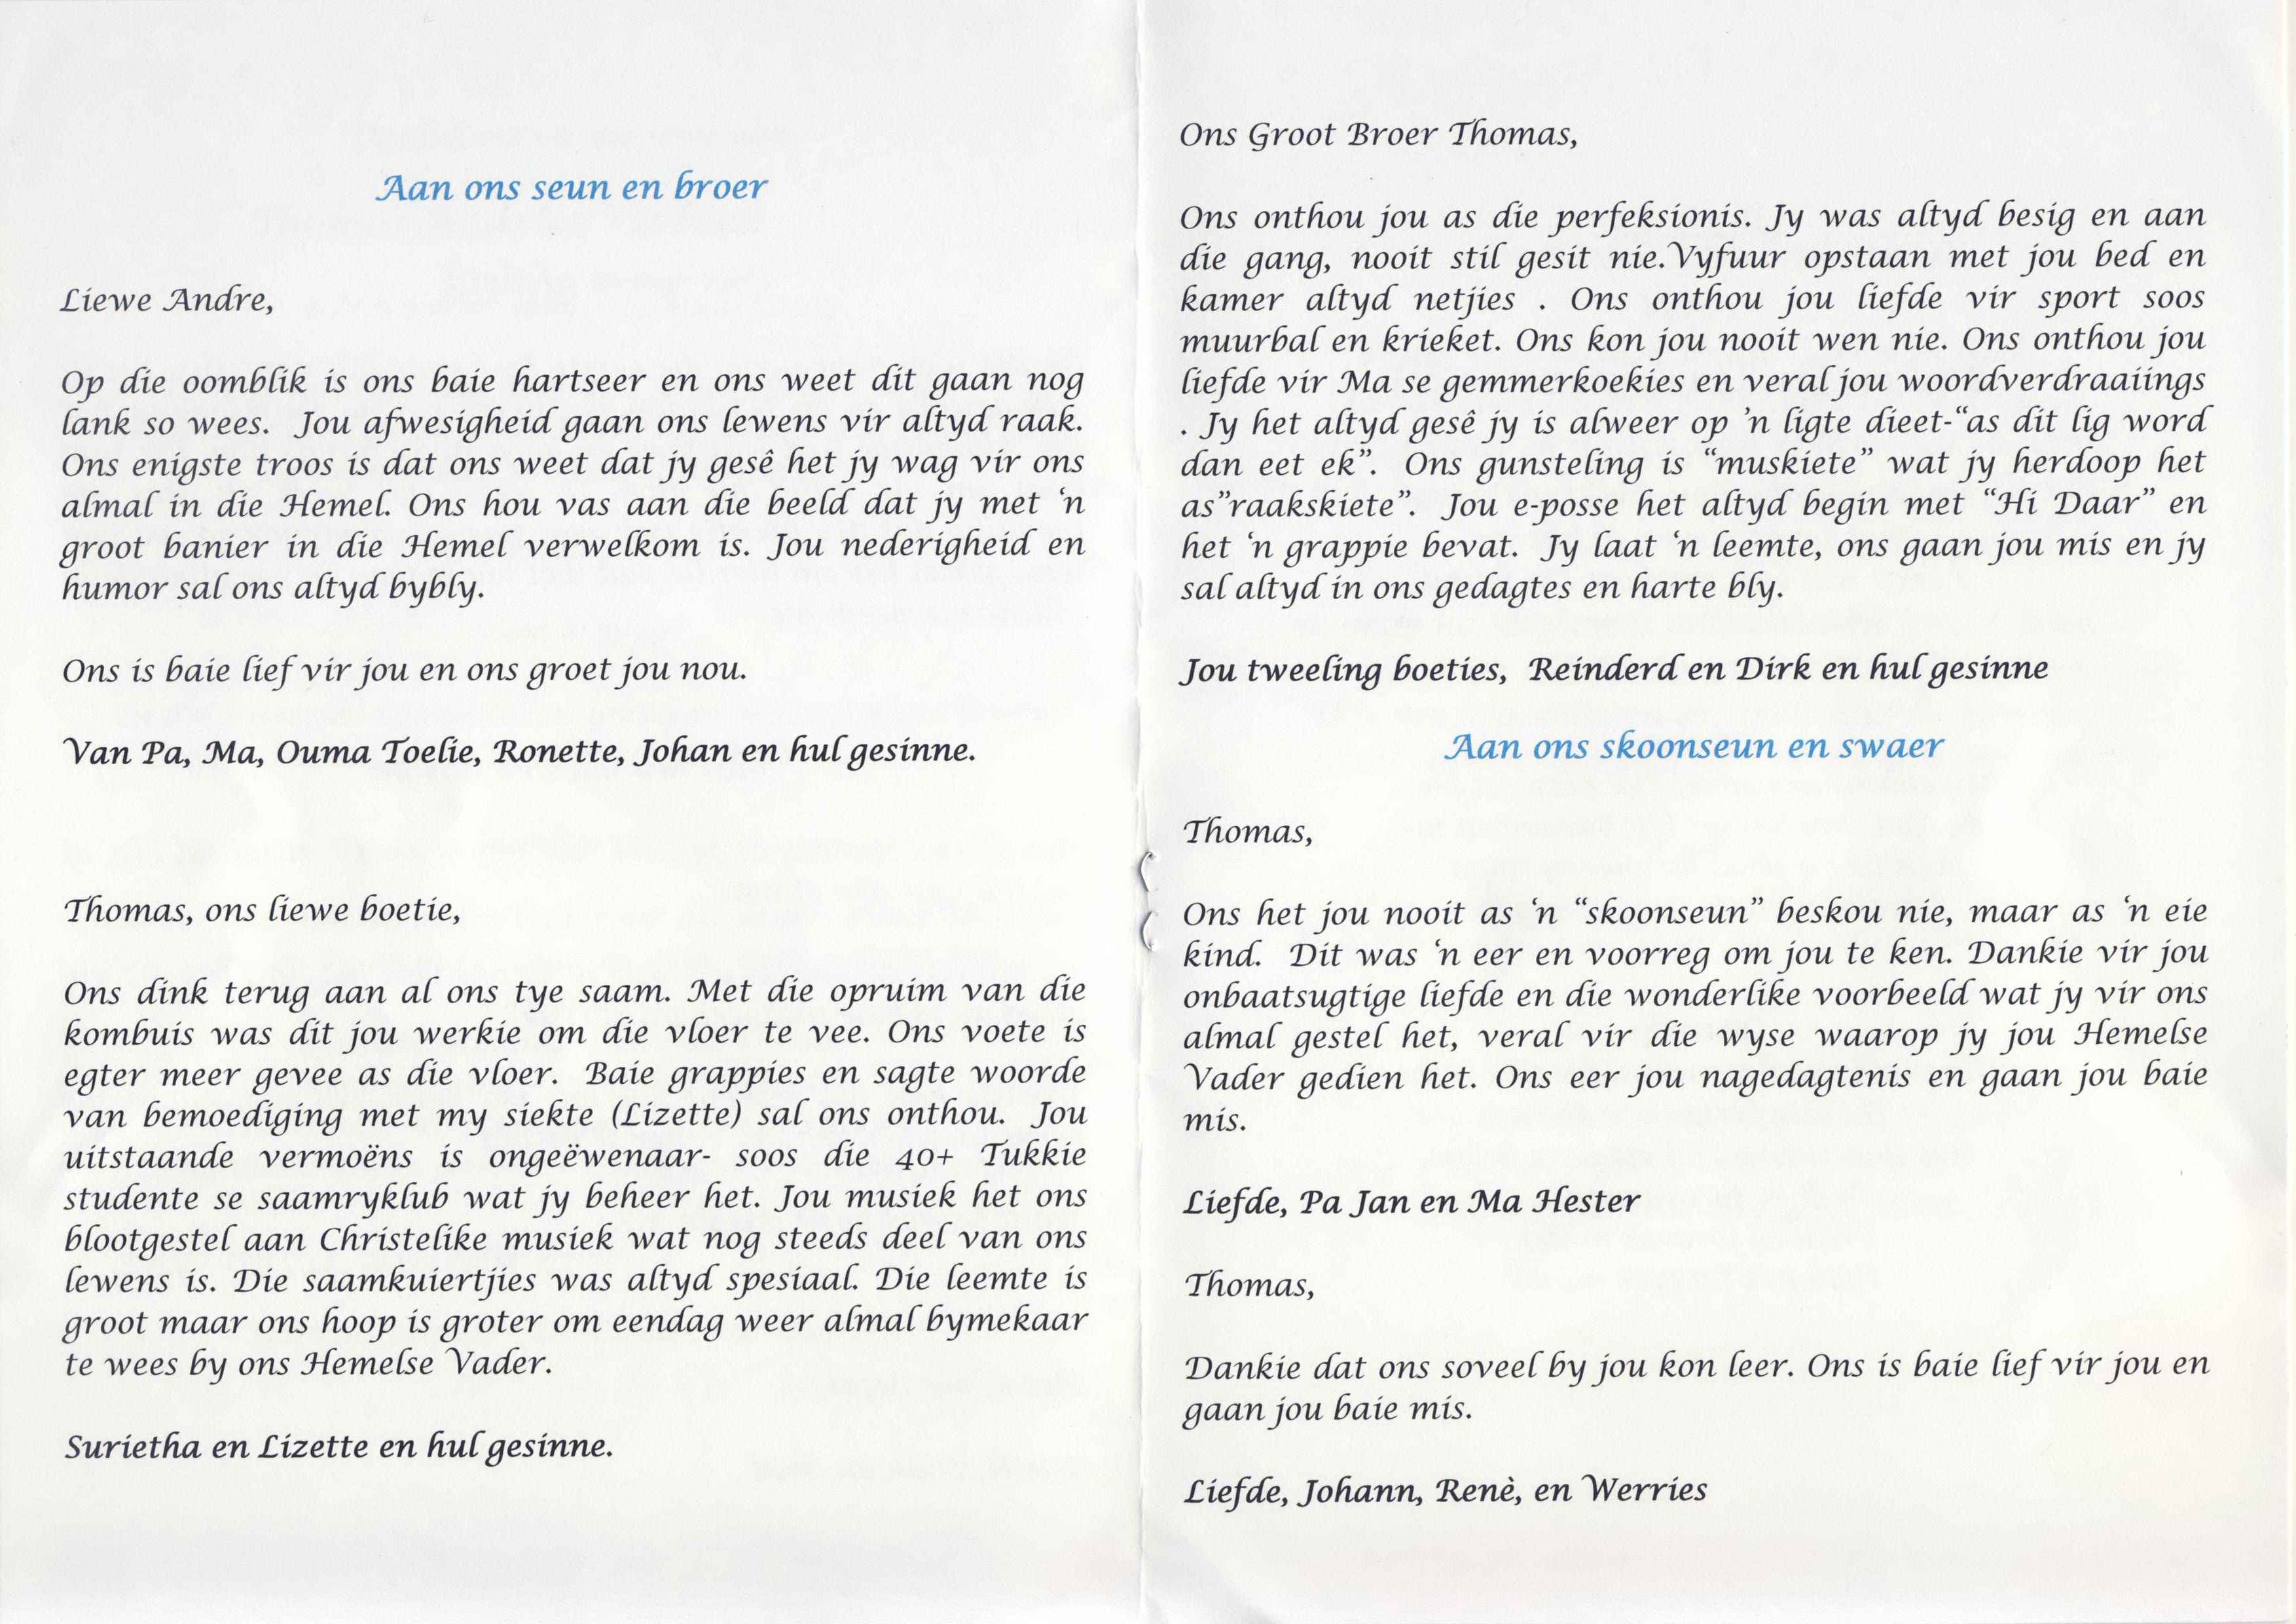 Aan ons seun en broer
Liewe Andre,
Op die oomblik is ons baie hartseer en ons weet dit gaan nog
lank so wees.  Jou afwesigheid gaan ons lewens vir altyd raak.
Ons enigste troos is dat ons weet dat jy gesê het jy wag vir ons
almal in die Hemel. Ons hou vas aan die beeld dat jy met ‘n
groot banier in die Hemel verwelkom is. Jou nederigheid en
humor sal ons altyd bybly.
Ons is baie lief vir jou en ons groet jou nou.
Van Pa, Ma, Ouma Toelie, Ronette, Johan en hul gesinne.
Thomas, ons liewe boetie,
Ons dink terug aan al ons tye saam. Met die opruim van die
kombuis was dit jou werkie om die vloer te vee. Ons voete is
egter meer gevee as die vloer.  Baie grappies en sagte woorde
van bemoediging met my siekte (Lizette) sal ons onthou.  Jou
uitstaande vermoëns is ongeëwenaar- soos die 40+ Tukkie
studente se saamryklub wat jy beheer het. Jou musiek het ons
blootgestel aan Christelike musiek wat nog steeds deel van ons
lewens is. Die saamkuiertjies was altyd spesiaal. Die leemte is
groot maar ons hoop is groter om eendag weer almal bymekaar
te wees by ons Hemelse Vader.
Surietha en Lizette en hul gesinne.
Ons Groot Broer Thomas,
Ons onthou jou as die perfeksionis. Jy was altyd besig en aan
die gang, nooit stil gesit nie.Vyfuur opstaan met jou bed en
kamer altyd netjies . Ons onthou jou liefde vir sport soos
muurbal en krieket. Ons kon jou nooit wen nie. Ons onthou jou
liefde vir Ma se gemmerkoekies en veral jou woordverdraaiings
. Jy het altyd gesê jy is alweer op ’n ligte dieet-“as dit lig word
dan eet ek”.  Ons gunsteling is “muskiete” wat jy herdoop het
as”raakskiete”.  Jou e-posse het altyd begin met “Hi Daar” en
het ‘n grappie bevat.  Jy laat ‘n leemte, ons gaan jou mis en jy
sal altyd in ons gedagtes en harte bly.
Jou tweeling boeties,  Reinderd en Dirk en hul gesinne
Aan ons skoonseun en swaer
Thomas,
Ons het jou nooit as ‘n “skoonseun” beskou nie, maar as ‘n eie
kind.  Dit was ‘n eer en voorreg om jou te ken. Dankie vir jou
onbaatsugtige liefde en die wonderlike voorbeeld wat jy vir ons
almal gestel het, veral vir die wyse waarop jy jou Hemelse
Vader gedien het. Ons eer jou nagedagtenis en gaan jou baie
mis.
Liefde, Pa Jan en Ma Hester
Thomas,
Dankie dat ons soveel by jou kon leer. Ons is baie lief vir jou en
gaan jou baie mis.
Liefde, Johann, Renè, en Werries